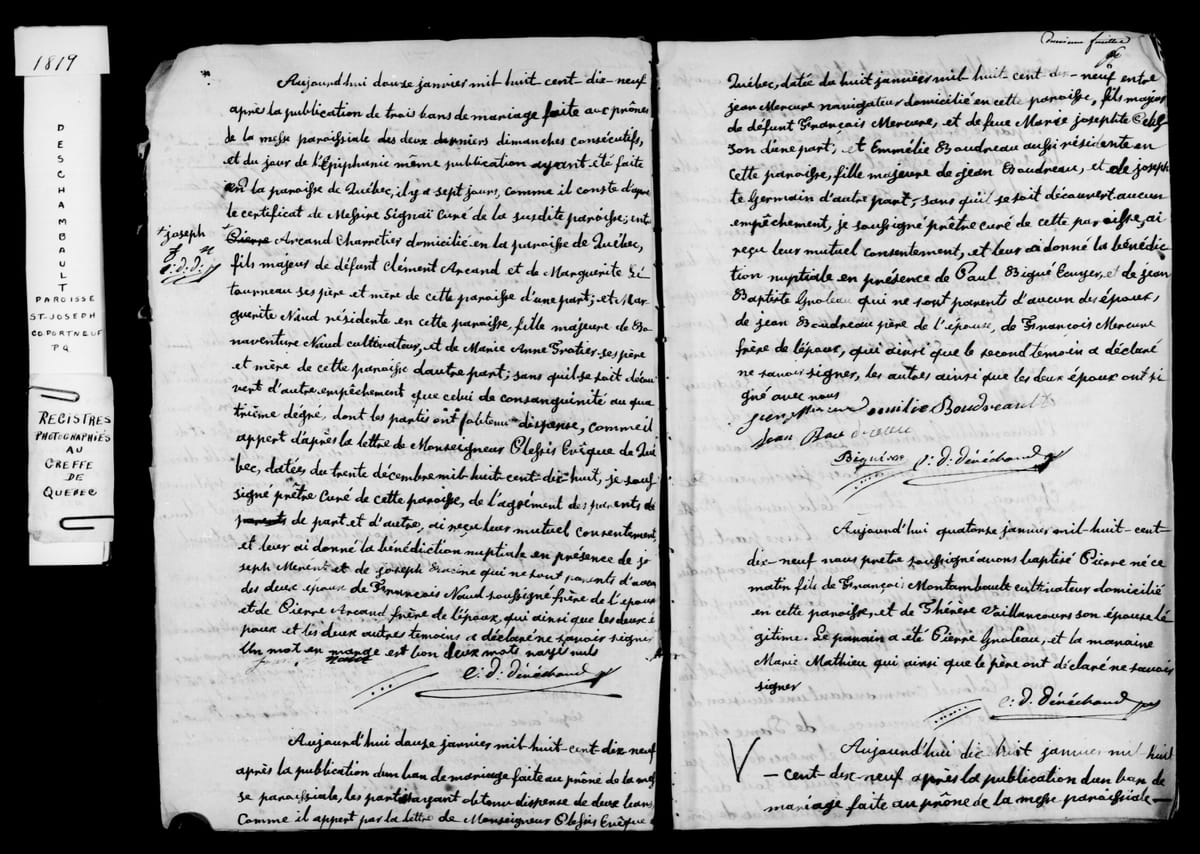 1819
DESCHAMBAULT
PAROISSE
ST-JOSEPH
CO. PORTNEUF
P.Q.
REGISTRES
PHOTOGRAPHIÉS
AU
GREFFE
DE
QUÉBEC
Aujourd'hui douse janvier mil huit cent dix-neuf
après la publication de trois bans de mariage faite aux prônes
de la messe paroissiale des deux derniers dimanches consécutifs,
et du jour de l'Epiphanie même publication ayant été faite
en la paroisse de Québec, il y a sept jours, comme il conste d'après
le certificat de Messire Signaï Curé de la susdite paroisse; entre
+ joseph
c: d: d:
Pierre Arcand Charretier domicilié en la paroisse de Québec,
fils majeur de défunt Clément Arcand et de Marguerite Le
tourneau ses père et mère de cette paroisse d'une part; et Mar
guerite Naud résidente en cette paroisse, fille majeure de Bo
naventure Naud cultivateur, et de Marie Anne Grotier ses père
et mère de cette paroisse d'autre part; sans qu'il se soit décou
vert d'autre empêchement que celui de consanguinité au qua
trième degré, dont les parties ont obtenu dispense, comme il
appert d'après la lettre de Monseigneur Plessis Evêque de Qué
bec, datée du trente décembre mil-huit-cent-dix-huit, je souf
signé prêtre Curé de cette paroisse, de l'agrément des parents de
parents de part et d'autre, ai reçu leur mutuel consentement,
et leur ai donné la bénédiction nuptiale en présence de jo
seph Mercure et de joseph Gracine qui ne sont parents d'aucun
des deux époux de François Naud soussigné frère de l'épouse
et de Pierre Arcand frère de l'époux, qui ainsi que les deux é
poux et les deux autres temoins a déclaré ne savoir signer
Un mot en marge est bon deux mots rayés nuls
C: d: Dénéchaud ptr
Aujourd'hui douse janvier mil-huit-cent-dix-neuf
après la publication d'un ban de mariage faite au prône de la mes
se paroissiale, les parties ayant obtenu dispense de deux bans,
Comme il appert par la lettre de Monseigneur Plessis Evêque
feuillet
Québec, datée du huit janvier mil huit cent dix-neuf entre
jean Mercure navigateur domicilié en cette paroisse, fils majeur
de défunt François Mercure, et de feue Marie josephte
son d'une part; et Emmélie Boudreau aussi résidente en
cette paroisse, fille majeure de jean Boudreau, et de joseph
te Germain d'autre part; sans qu'il se soit découvert aucun
empêchement, je soussigné prêtre curé de cette paroisse, ai
reçu leur mutuel consentement, et leur ai donné la bénédic
tion nuptiale en présence de Paul Bigué Ecuyer, et de jean
Baptiste Groleau qui ne sont parents d'aucun des époux,
de jean Boudreau père de l'épouse, de François Mercure
frère de l'époux, qui ainsi que le second témoin a déclaré
ne savoir signer, les autres ainsi que les deux époux ont si
gné avec nous
jean Mercure emilie Boudreault
Jean Boudreau
C: d: Dénéchaud ptr
Aujourd'hui quatorse janvier mil-huit-cent-
dix-neuf nous prêtre soussigné avons baptisé Pierre né ce
matin fils de François Montambault cultivateur domicilié
en cette paroisse, et de Thérèse Vaillancours son épouse lé
gitime. Le parrain a été Pierre Groleau, et la maraine
Marie Mathieu qui ainsi que le père ont déclaré ne savoir
signer
C. d. Dénéchaud ptr
Aujourd'hui dix huit janvier mil huit
-cent-dix-neuf après la publication d'un ban de
mariage faite au prône de la messe paroissiale-